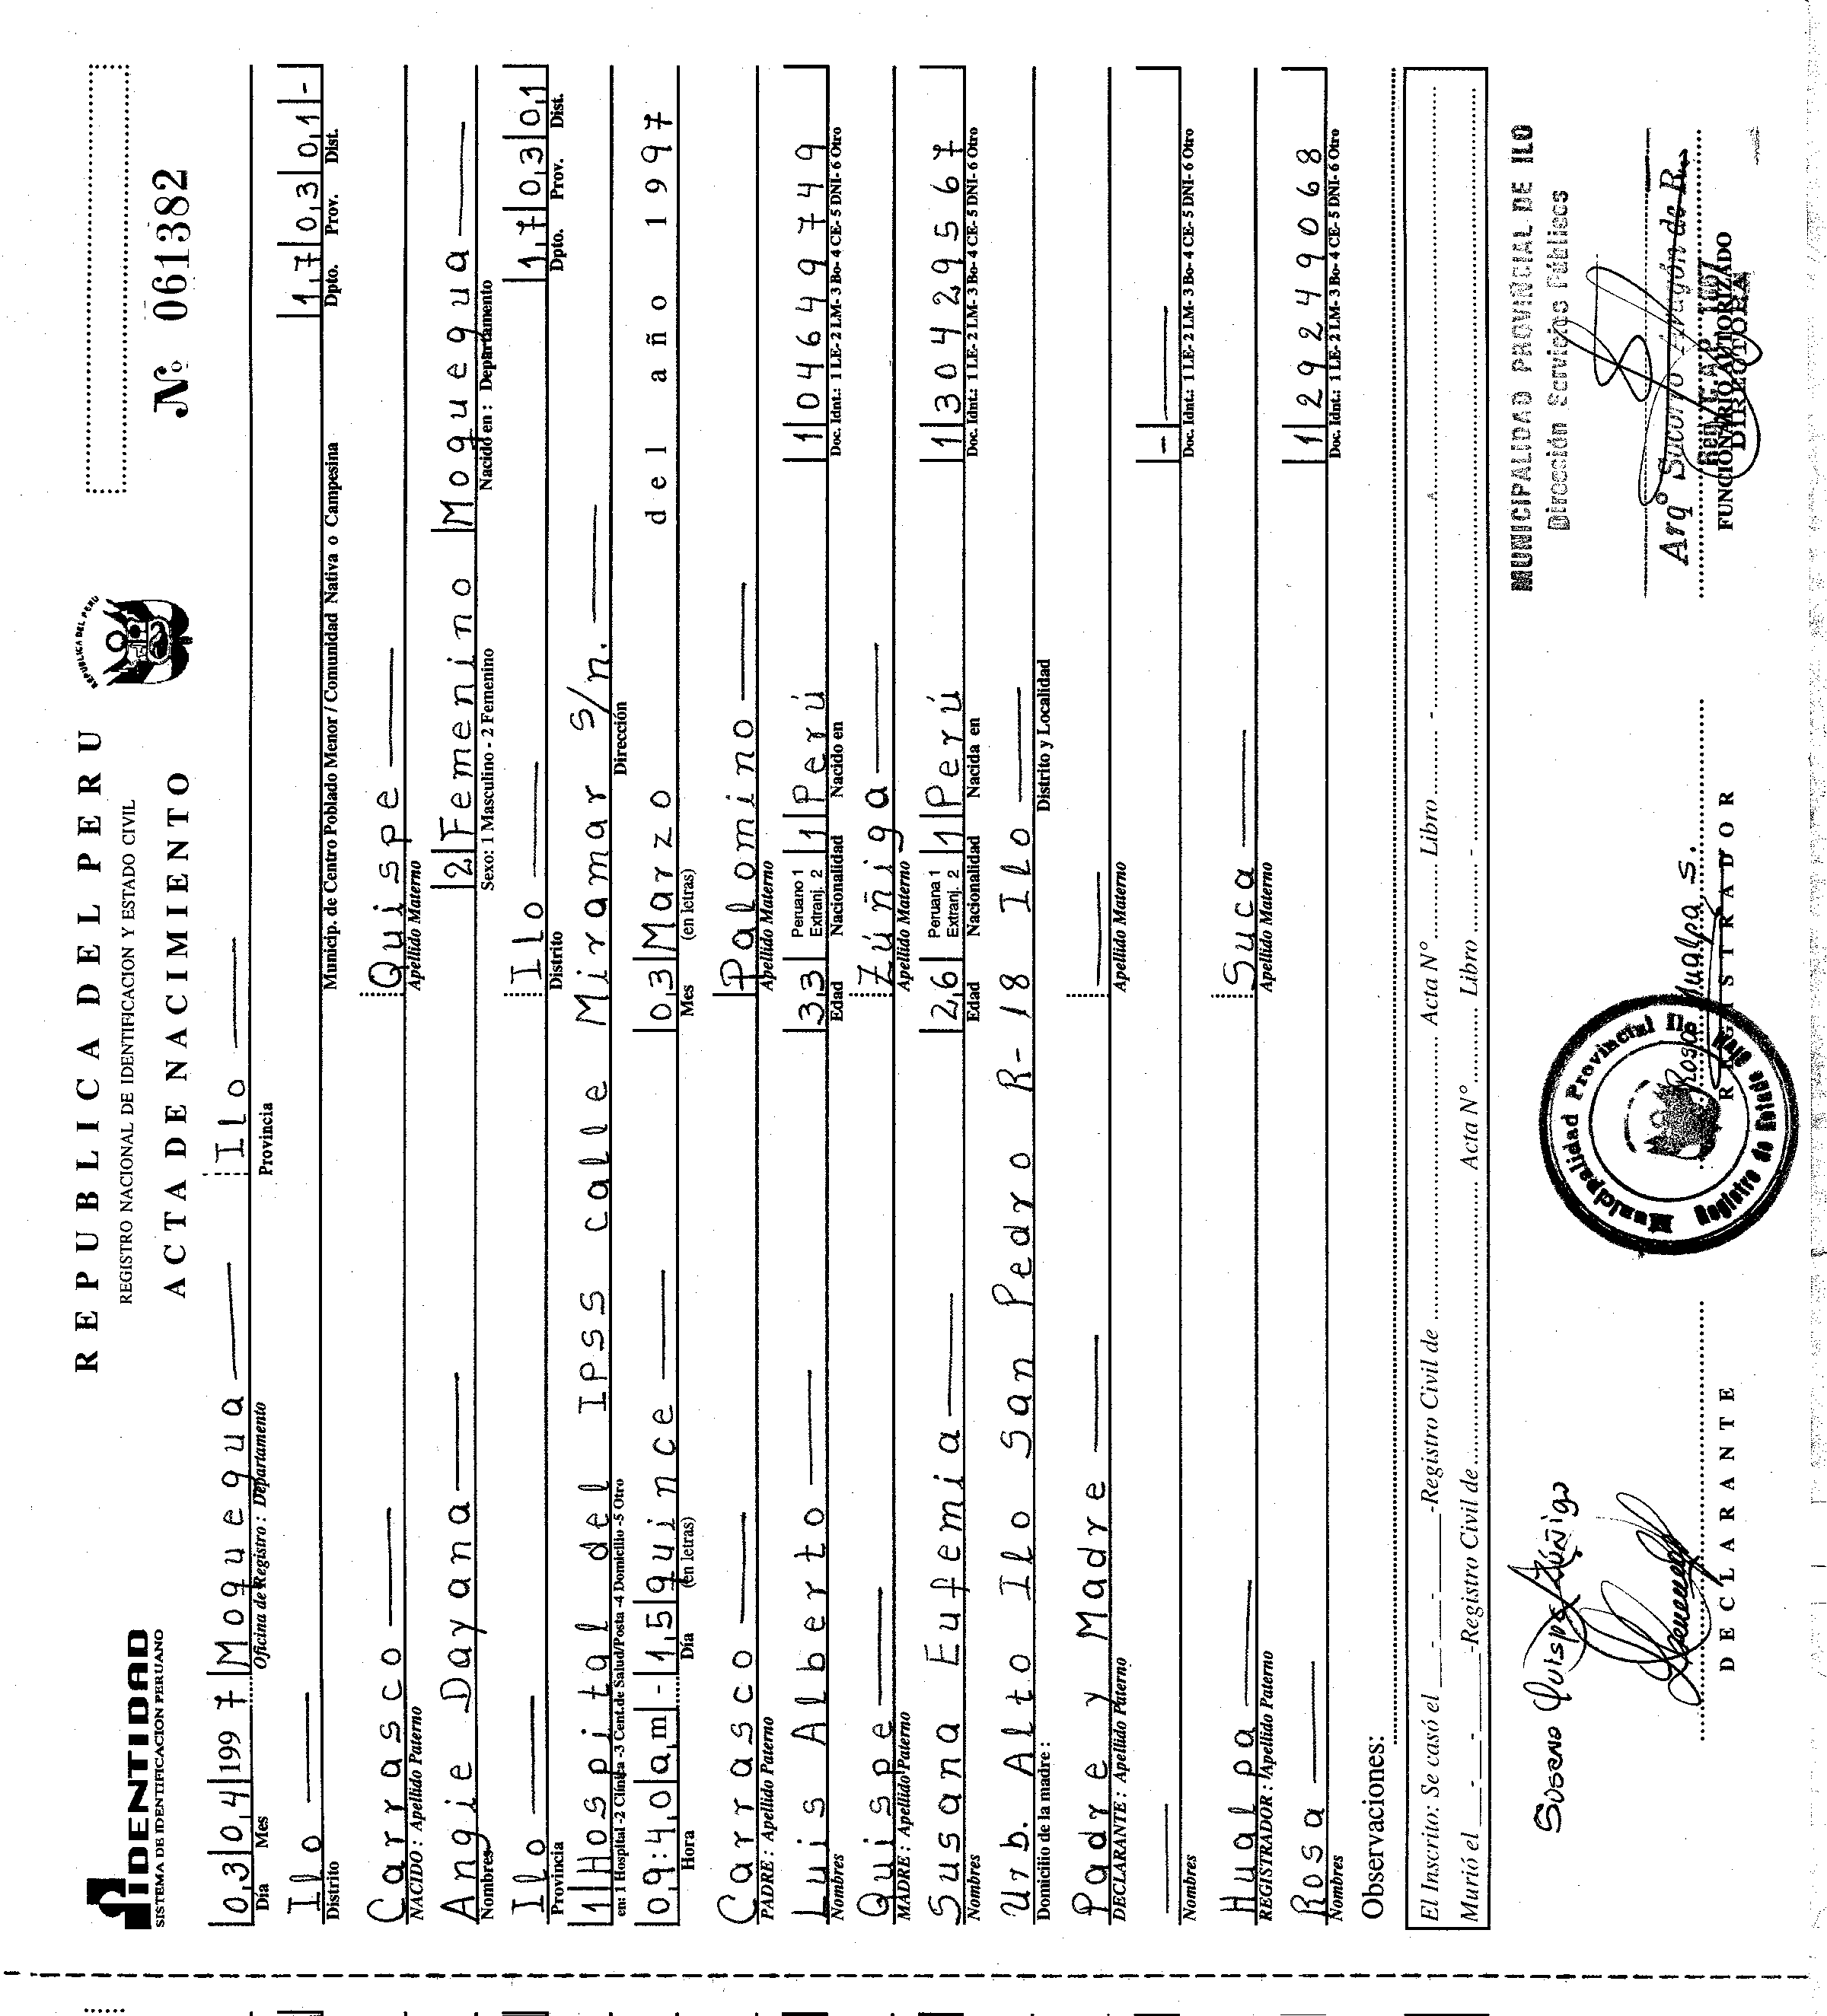 IDENTIDAD
SISTEMA DE IDENTIFICACION PERUANO
REPUBLICA DEL PERU
REGISTRO NACIONAL DE IDENTIFICACION Y ESTADO CIVIL
ACTA DE NACIMIENTO
REPUBLICA DEL PERU
Nº 061382
03 04 1997 Moquegua Ilo
Día Mes Oficina de Registro : Departamento Provincia
Ilo 17 03 01 -
Distrito Municip. de Centro Poblado Menor / Comunidad Nativa o Campesina Dpto. Prov. Dist.
Carrasco Quispe
NACIDO : Apellido Paterno Apellido Materno
Angie Dayana 2 Femenino Moquegua
Nombres Sexo: 1 Masculino - 2 Femenino Nacido en : Departamento
Ilo Ilo 17 03 01
Provincia Distrito Dpto. Prov. Dist.
1 Hospital del IPSS calle Miramar s/n.
en: 1 Hospital -2 Clínica -3 Cent.de Salud/Posta -4 Domicilio -5 Otro Dirección
09:40 am - 15 quince 03 Marzo del año 1997
Hora Día (en letras) Mes (en letras)
Carrasco Palomino
PADRE : Apellido Paterno Apellido Materno
Luis Alberto 33 Peruano 1 Extranj. 2 1 Perú 1 04649749
Nombres Edad Nacionalidad Nacido en Doc. Idnt.: 1 LE- 2 LM- 3 Bo- 4 CE- 5 DNI- 6 Otro
Quispe Zúñiga
MADRE : Apellido Paterno Apellido Materno
Susana Eufemia 26 Peruana 1 Extranj. 2 1 Perú 1 30429567
Nombres Edad Nacionalidad Nacida en Doc. Idnt.: 1 LE- 2 LM- 3 Bo- 4 CE- 5 DNI- 6 Otro
Urb. Alto Ilo San Pedro R-18 Ilo
Domicilio de la madre : Distrito y Localidad
Padre y Madre
DECLARANTE : Apellido Paterno Apellido Materno
-
Nombres Doc. Idnt.: 1 LE- 2 LM- 3 Bo- 4 CE- 5 DNI- 6 Otro
Hualpa Suca
REGISTRADOR : Apellido Paterno Apellido Materno
Rosa 1 29249068
Nombres Doc. Idnt.: 1 LE- 2 LM- 3 Bo- 4 CE- 5 DNI- 6 Otro
Observaciones:
El Inscrito: Se casó el - - -Registro Civil de Acta N° Libro -
Murió el - - -Registro Civil de Acta N° Libro -
MUNICIPALIDAD PROVINCIAL DE ILO
Dirección Servicios Públicos
Susana Quispe Zúñiga
Municipalidad Provincial Ilo
Registro de Estado
Rosa Hualpa S.
Arqº Socorro
DECLARANTE
REGISTRADOR
FUNCIONARIO AUTORIZADO
DIRECTORA